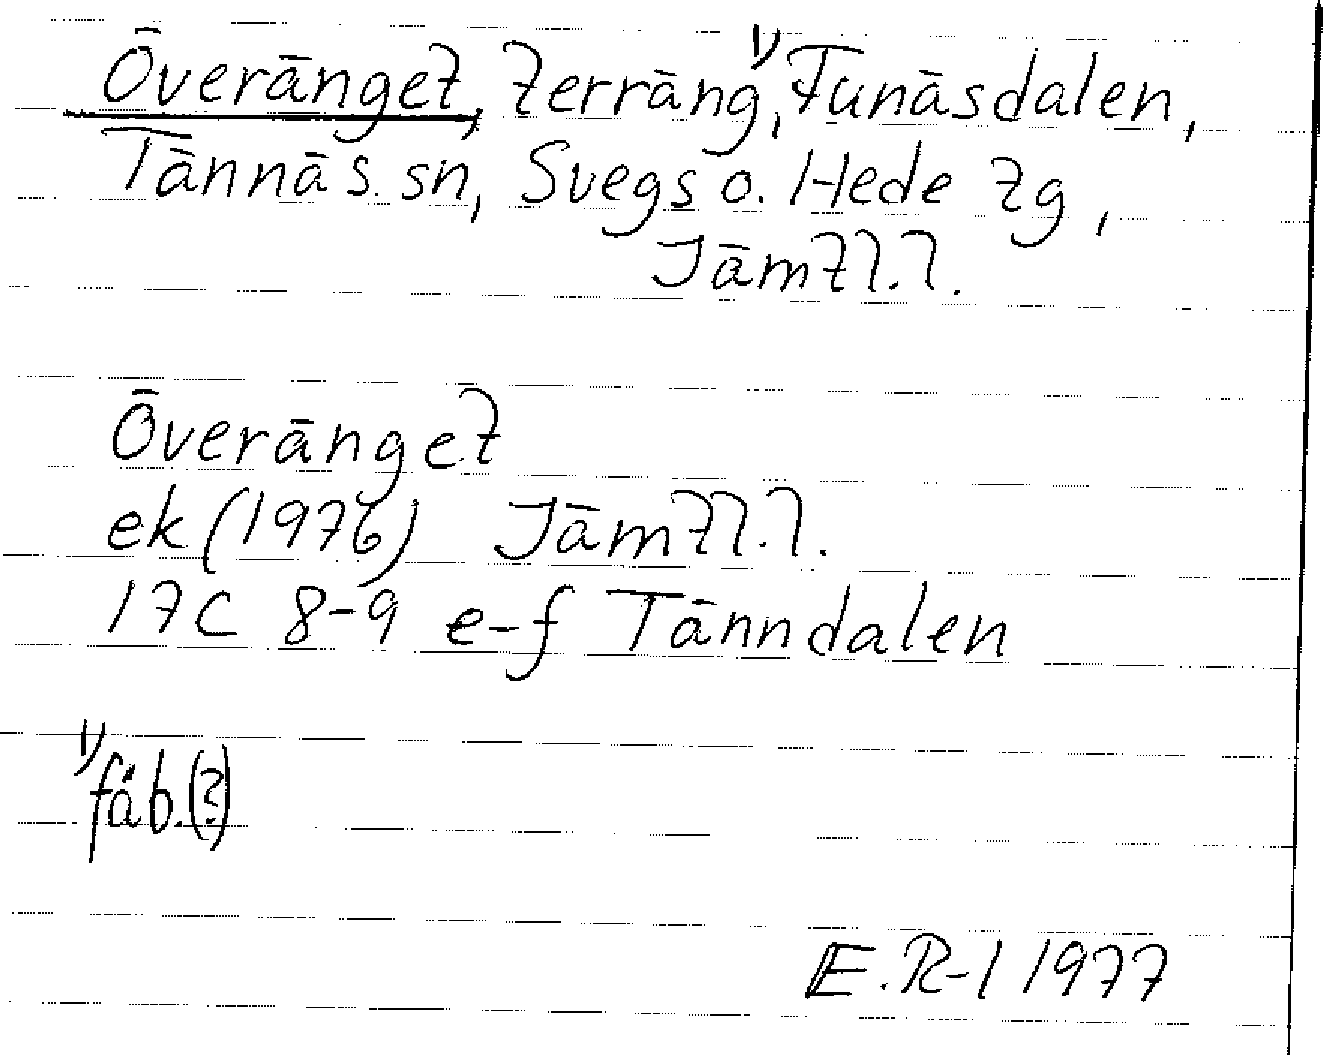 Överänget, terräng,¹⁾ Funäsdalen,
Tännäs sn, Svegs o. Hede tg,
Jämtl.l.
Överänget
ek (1976) Jämtl.l.
17C 8-9 e-f Tänndalen
¹⁾fäb.(?)
E.R-l 1977